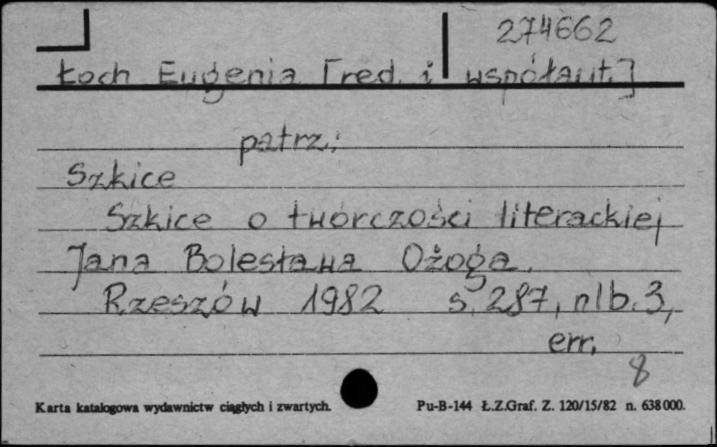 274662
Łoch Eugenia [red. i współaut.]
patrz:
Szkice
Szkice o twórczości literackiej
Jana Bolesława Ożoga.
Rzeszów 1982 s. 287, nlb. 3,
err.
8
Karta katalogowa wydawnictw ciągłych i zwartych. Pu-B-144 Ł.Z.Graf. Z. 120/15/82 n. 638000.